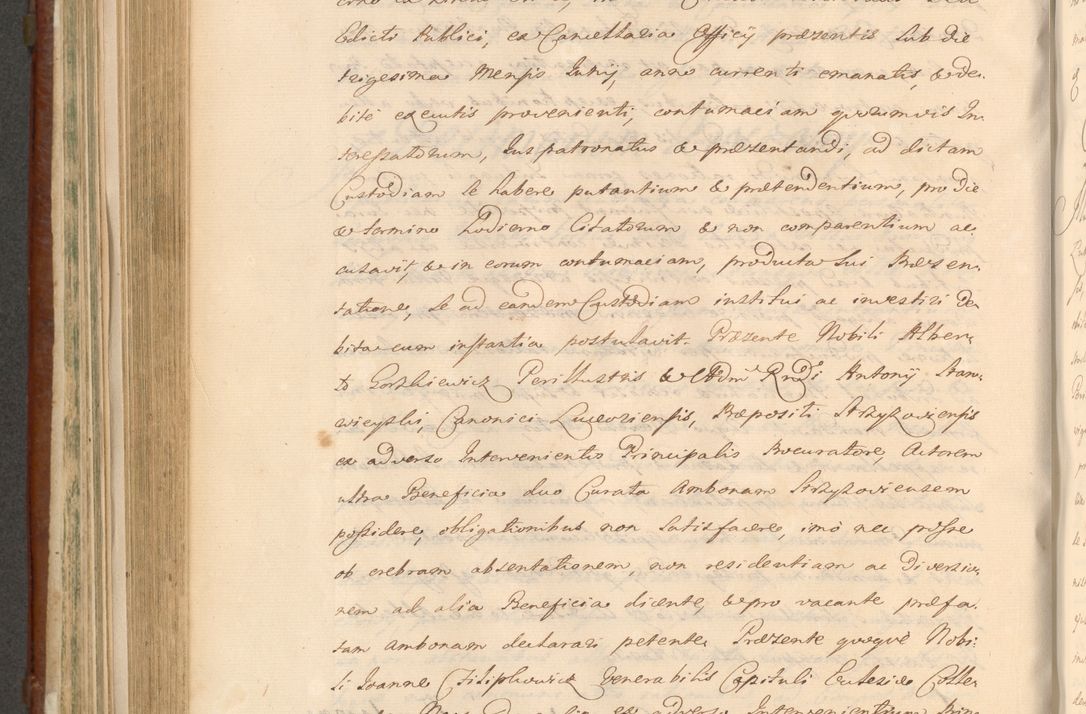 Edicti Publici, ex Cancellaria Officij præsentis sub die
trigesima Mensis Junij, anno currenti emanatis, & de-
bite executis provenienti, contumaciam quorumvis In-
teressatorum, Juspatronatus & præsentandi, ad dictam
Custodiam se habere putantium & prætendentium, pro die
& termino hodierno Citatorum & non comparentium ac-
cusavit & in eorum contumaciam, producta sui Præsen-
tatione, se ad eandem Custodiam institui ac investiri de-
bita cum instantia postulavit. Præsente Nobili Alber-
to Gorskiewicz Perillustris & Adm. Rndi Antonij Stan-
wieyski, Canonici Luceoriensis, Præpositi Strzyzoviensis
ex adverso Intervenientis Principalis Procuratore, Actorem
ultra Beneficia duo Curata Ambonam Strzyzoviensem
possidere, obligationibus non satisfacere, imò nec posse
ob crebram absentationem, non residentiam ac diversio-
nem ad alia Beneficia dicente, & pro vacante præfa-
tam Ambonam declarari petente. Præsente quoque Nobi-
li Joanne Filipkowicz Venerabilis Capituli Ecclesiæ Colle-